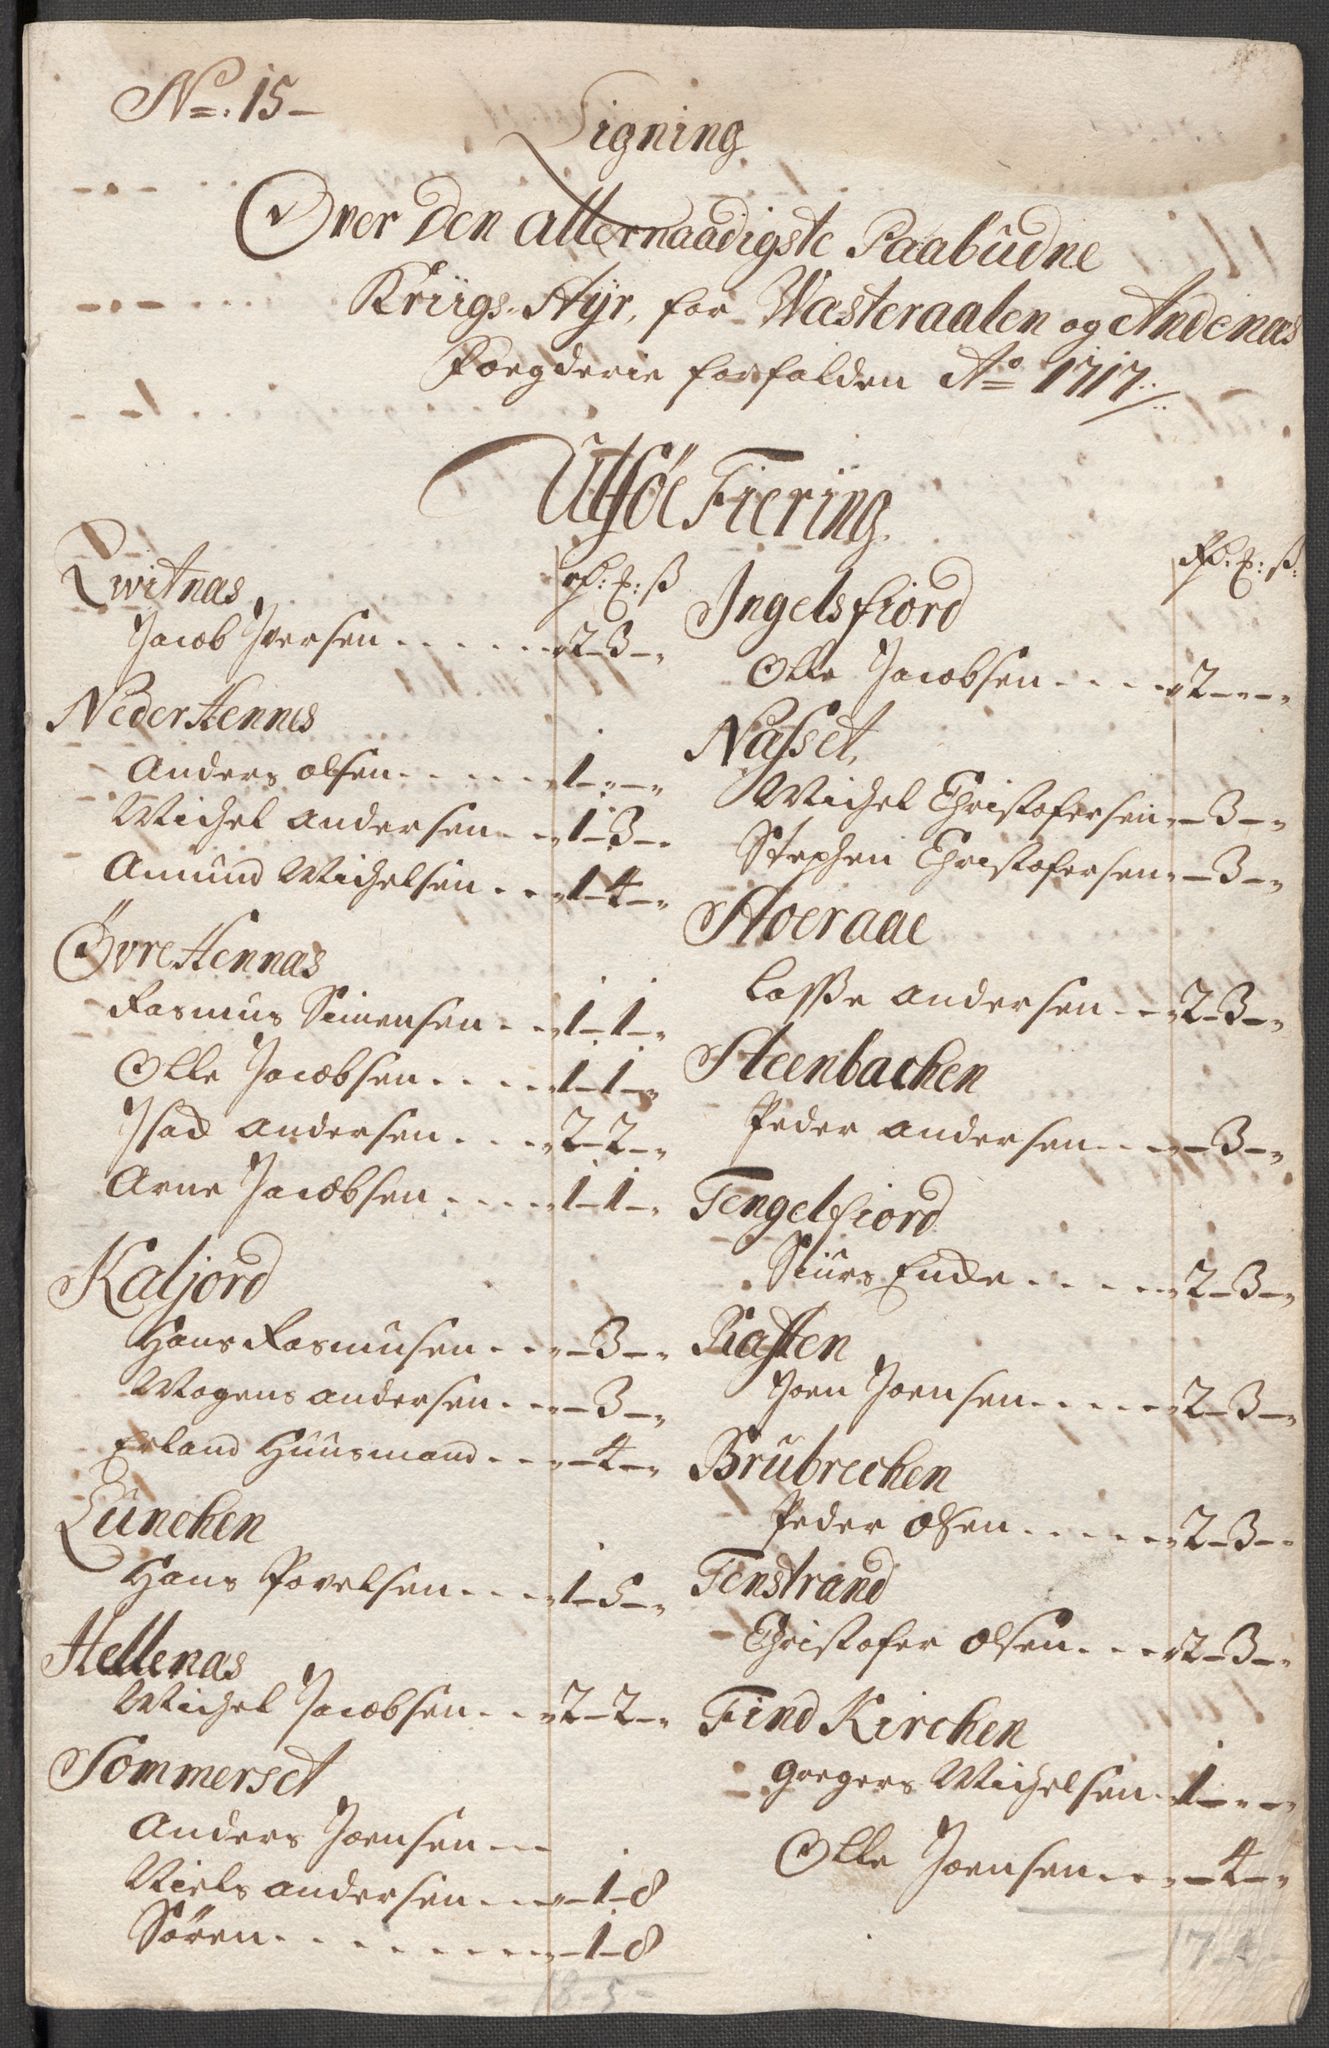 No. 15 –
Ligning
Over Den allernaadigste Paabudne
Kriigs-Styr, for Wæsteraalen og Andenæs
Foegderie forfalden Ao 1717
Utsöe Fiering.
rd: E: ß
Qwitnæs
Jacob Iversen . . . . . 2-3-"
Neder Hennes
Anders olsen . . . . . 1-"-"
Michel Andersen . . . 1-3-"
Amund Michelsen . . . 1-4-"
Övre Hennæs
Rasmus Simensen . . . 1-1-"
Olle Jacobsen . . . . 1-1-"
Isac Andersen . . . . 2-2-"
Arne Jacobsen . . . . 1-1-"
Kaljord
Hans Rasmusen . . . "-3-"
Mogens Andersen . . . "-3-"
Erland Huusmand . . . "-4-"
Lünchen
Hans Povelsen . . . 1-5-"
Hellenæs
Michel Jacobsen . . . 2-2-"
Sommerset
Anders Joensen . . .
Niels Andersen . . . "-1-8
Sören . . . . . . . . "-1-8
18-5-
Rd. E: ß:
Ingelsfiord
Olle Jacobsen . . . . 2-"-"
Næsset,
Michel Christofersen "-3-"
Stephen Christofersen "-3-"
Stoeraae
Lasse Andersen . . . 2-3-"
Steenbachen
Peder Andersen . . . "-3-"
Tengelfiord
Siurs Encke . . . . 2-3-"
Raften
Joen Joensen . . . . 2-3-"
Brübrechen
Peder Olsen . . . . . 2-3-"
Fenstrand
Christofer Olsen . . . 2-3-"
Find Kirchen
Gregers Michelsen . 1-"-"
Olle Joensen . . . "-4-"
- 17-4-